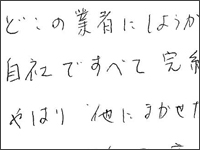 どこの業者にしようか
自社ですべて完結
やはり 他にまかせた